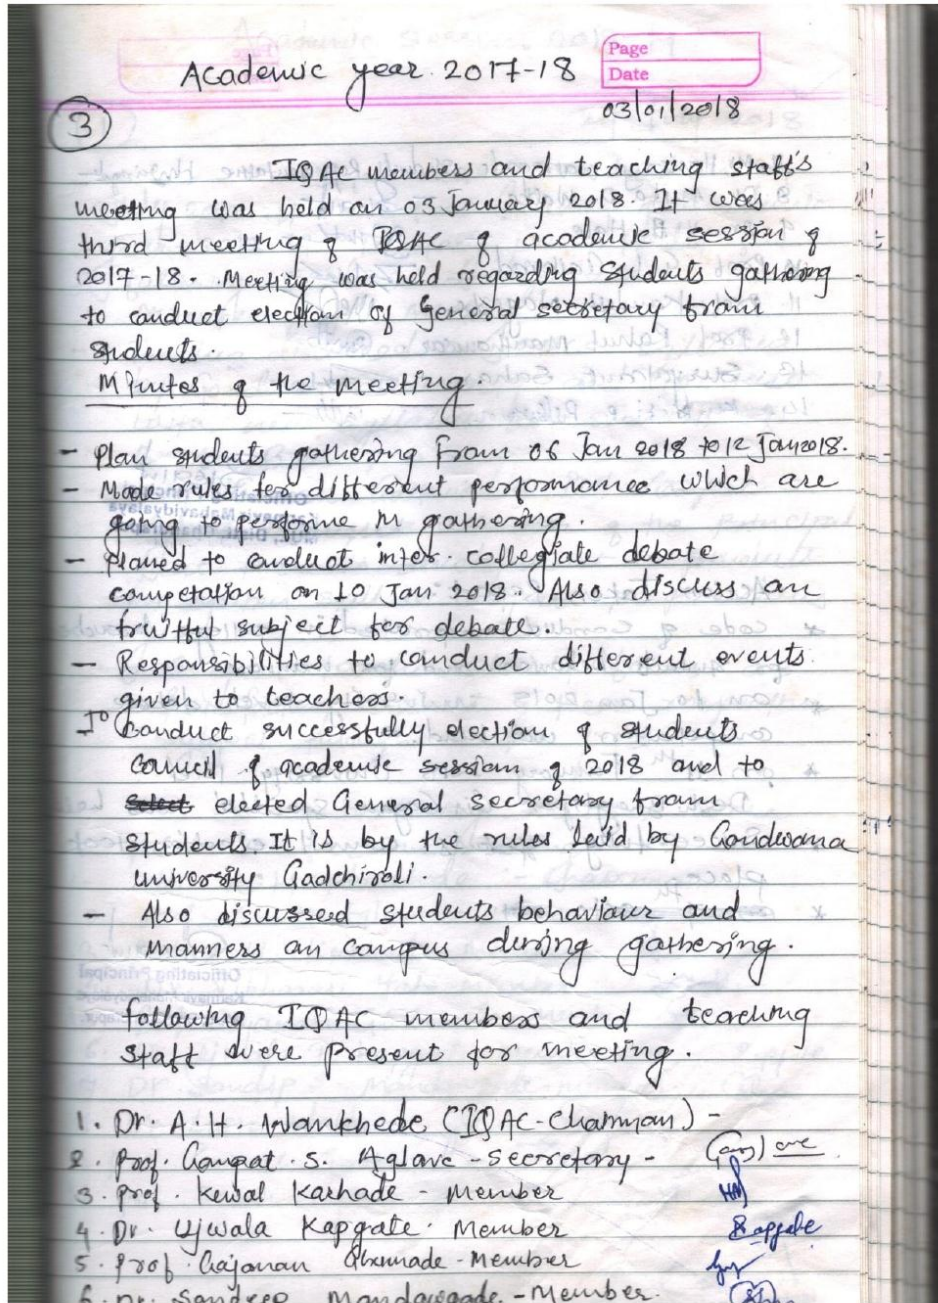 Academic year 2017-18
Page
Date
03/01/2018
3
IQAC members and teaching staff's
meeting was held on 03 January 2018. It was
third meeting of IQAC of academic session of
2017-18. Meeting was held regarding students gathering
to conduct election of General secretary from
students.
Minutes of the meeting.
- Plan students gathering from 06 Jan 2018 to 12 Jan 2018.
- Made rules for different performance which are
going to performe in gathering.
- planed to conduct inter. collegiate debate
competation on 10 Jan 2018. Also discuss on
fruitful subject for debate.
- Responsibilities to conduct different events
given to teachers.
- To conduct successfully election of students
council of academic session of 2018 and to
select elected General secretary from
students. It is by the rules by Gondwana
university Gadchiroli.
- Also discussed students behaviour and
manners on campus during gathering.
following IQAC members and teaching
staff were present for meeting.
1. Dr. A. H. Wankhede (IQAC-Chairman) -
2. Prof. Ganpat. S. Aglave - Secretary -
3. Prof. Kewal Karhade - Member
4. Dr. Ujwala Kapgate. Member Kapgate
5. Prof. Gajanan - Member
6. Dr. Sandeep - Member.